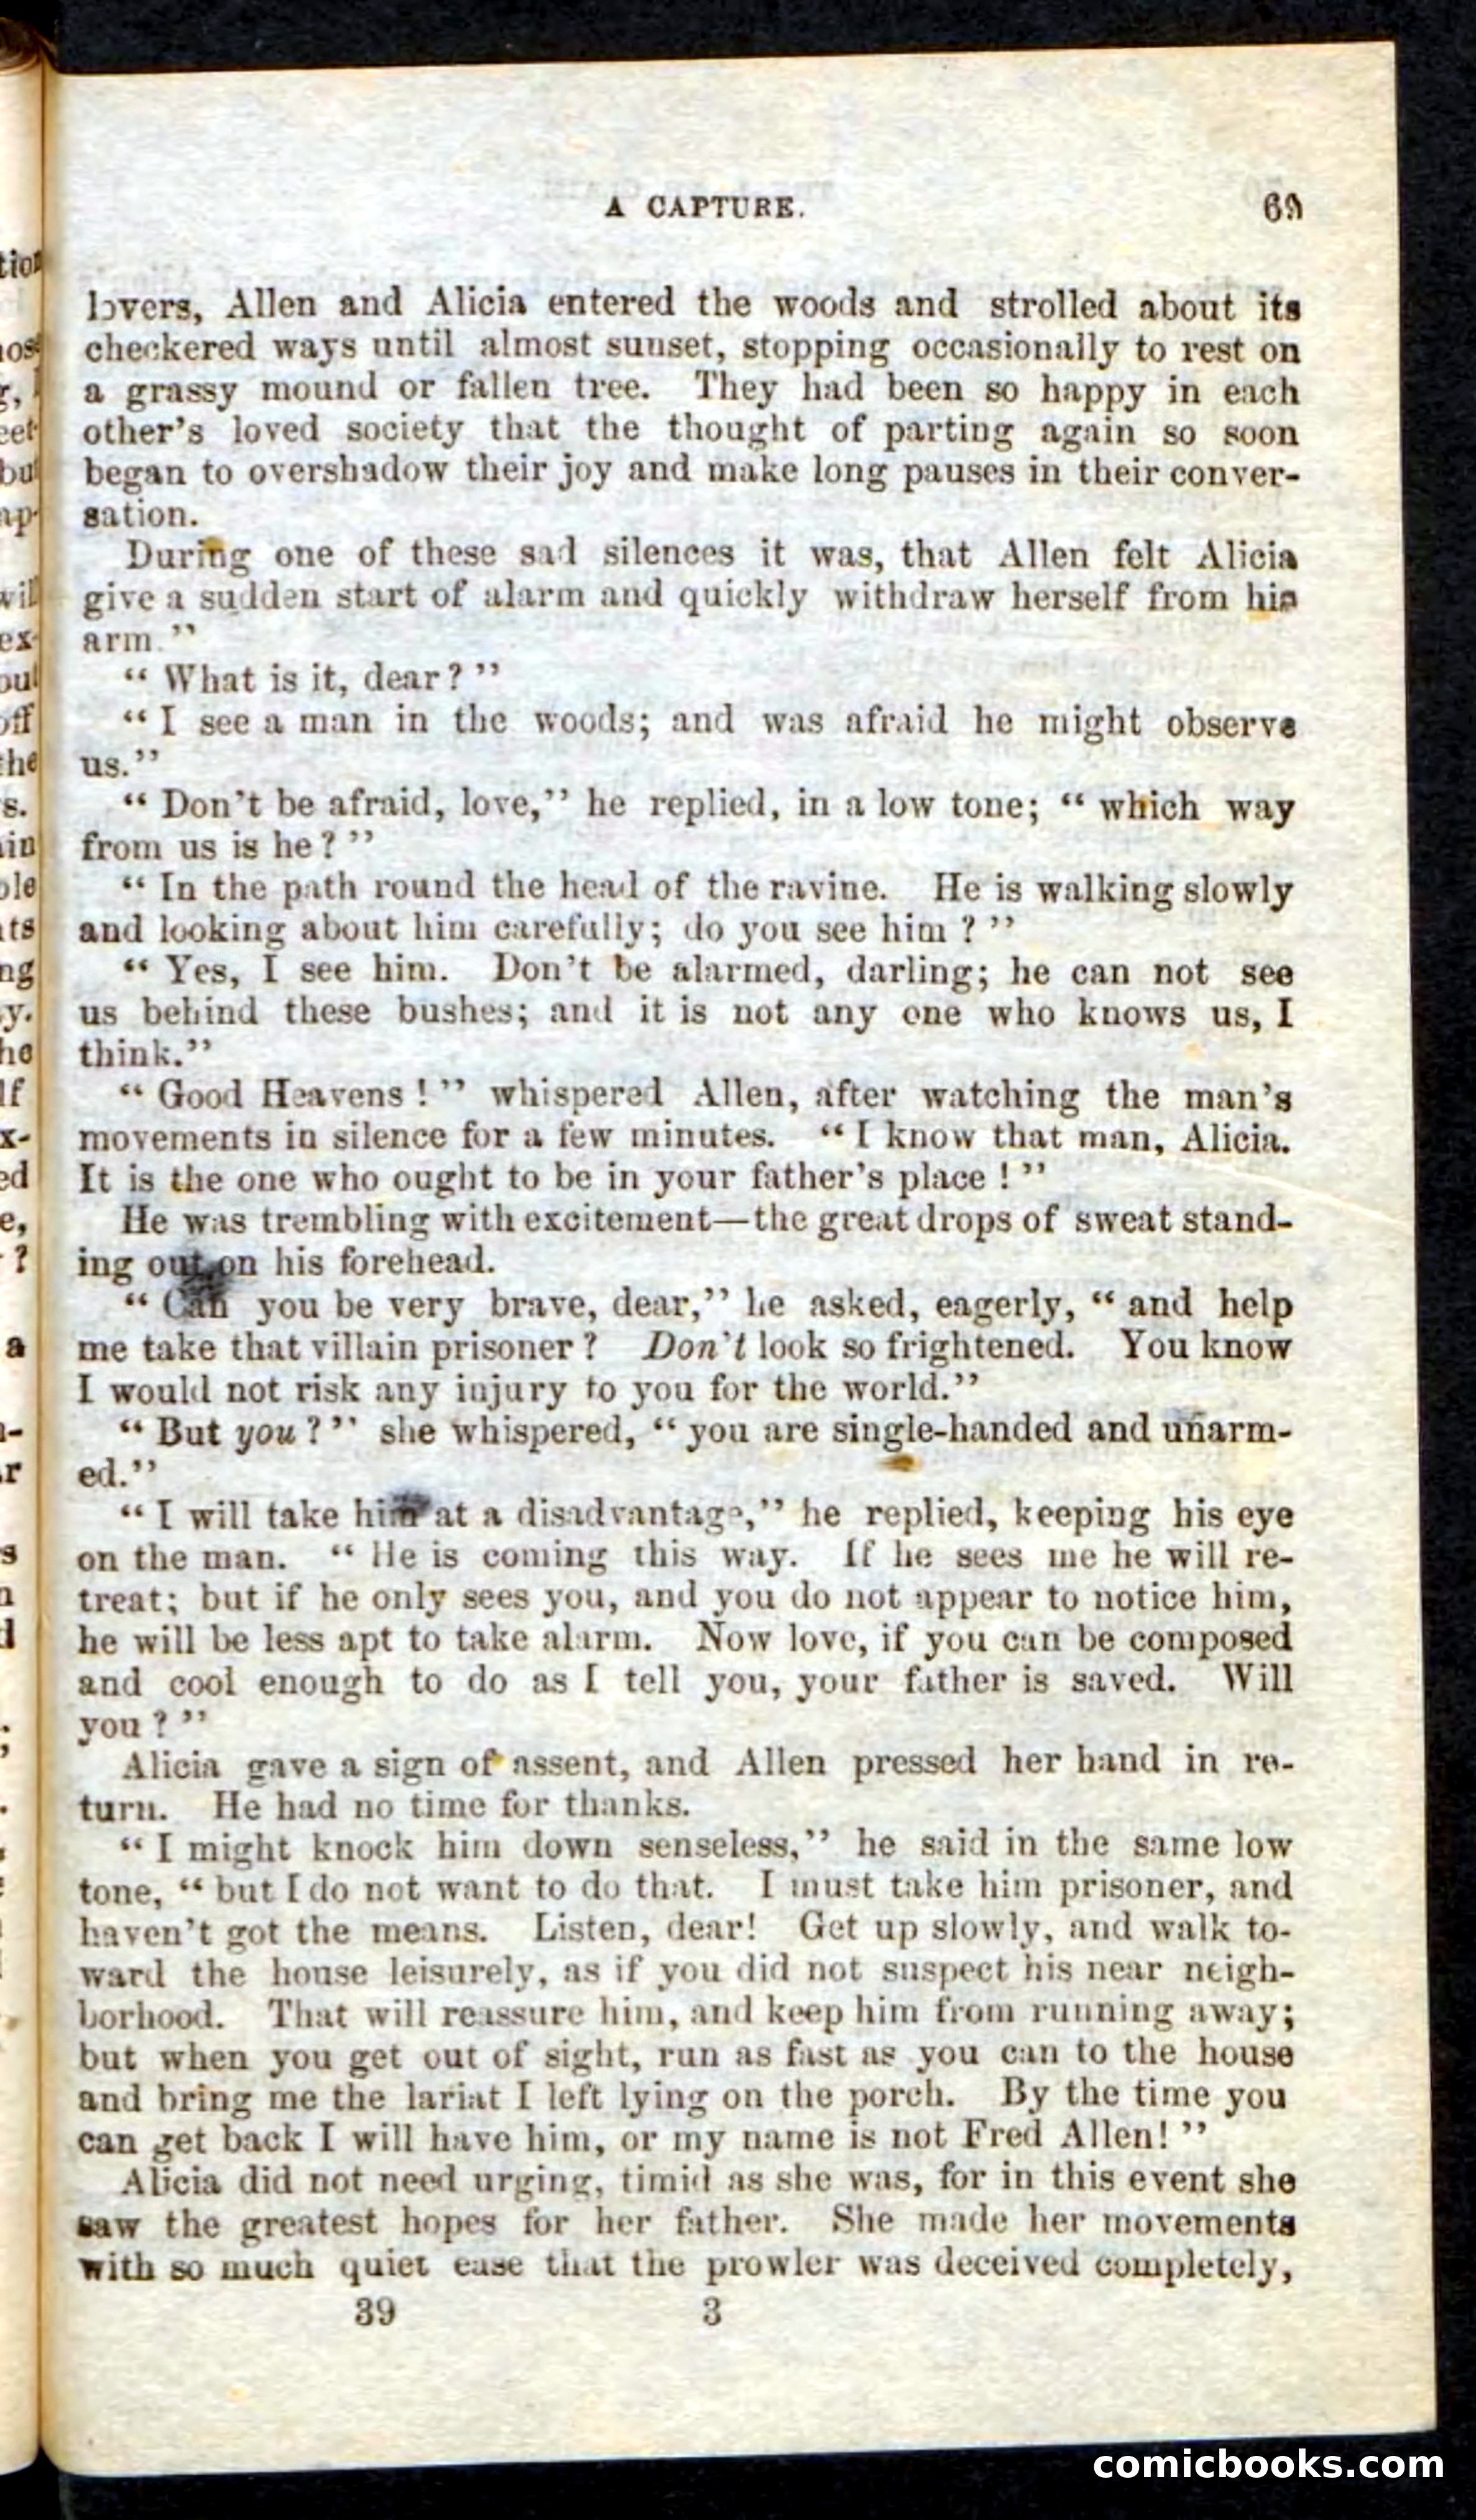 A CAPTURE. 69
lovers, Allen and Alicia entered the woods and strolled about its
checkered ways until almost sunset, stopping occasionally to rest on
a grassy mound or fallen tree. They had been so happy in each
other's loved society that the thought of parting again so soon
began to overshadow their joy and make long pauses in their conver-
sation.
During one of these sad silences it was, that Allen felt Alicia
give a sudden start of alarm and quickly withdraw herself from his
arm."
“ What is it, dear ? ”
“ I see a man in the woods; and was afraid he might observe
us.”
“ Don't be afraid, love,” he replied, in a low tone; “ which way
from us is he ? ”
“ In the path round the head of the ravine. He is walking slowly
and looking about him carefully; do you see him ? ”
“ Yes, I see him. Don't be alarmed, darling; he can not see
us behind these bushes; and it is not any one who knows us, I
think.”
“ Good Heavens ! ” whispered Allen, after watching the man's
movements in silence for a few minutes. “ I know that man, Alicia.
It is the one who ought to be in your father's place ! ”
He was trembling with excitement—the great drops of sweat stand-
ing out on his forehead.
“ Can you be very brave, dear,” he asked, eagerly, “ and help
me take that villain prisoner ? Don't look so frightened. You know
I would not risk any injury to you for the world.”
“ But you ? ” she whispered, “ you are single-handed and unarm-
ed.”
“ I will take him at a disadvantage,” he replied, keeping his eye
on the man. “ He is coming this way. If he sees me he will re-
treat; but if he only sees you, and you do not appear to notice him,
he will be less apt to take alarm. Now love, if you can be composed
and cool enough to do as I tell you, your father is saved. Will
you ? ”
Alicia gave a sign of assent, and Allen pressed her hand in re-
turn. He had no time for thanks.
“ I might knock him down senseless,” he said in the same low
tone, “ but I do not want to do that. I must take him prisoner, and
haven't got the means. Listen, dear! Get up slowly, and walk to-
ward the house leisurely, as if you did not suspect his near neigh-
borhood. That will reassure him, and keep him from running away;
but when you get out of sight, run as fast as you can to the house
and bring me the lariat I left lying on the porch. By the time you
can get back I will have him, or my name is not Fred Allen! ”
Alicia did not need urging, timid as she was, for in this event she
saw the greatest hopes for her father. She made her movements
with so much quiet ease that the prowler was deceived completely,
39 3
comicbooks.com